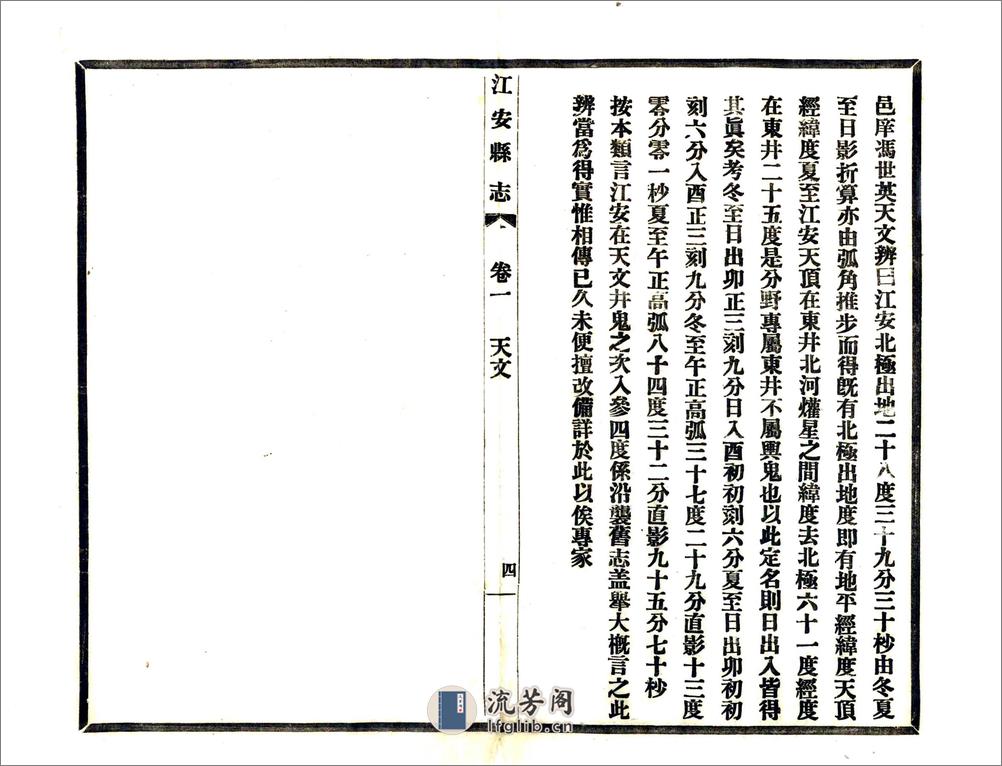 邑庠馮世英天文辨曰江安北極出地二十八度三十九分三十秒由冬夏
至日影折算亦由弧角推步而得既有北極出地度即有地平經緯度天頂
經緯度夏至江安天頂在東井北河爟星之間緯度去北極六十一度經度
在東井二十五度是分野專屬東井不屬輿鬼也以此定名則日出入皆得
其眞矣考冬至日出卯正三刻九分日入酉初初刻六分夏至日出卯初初
刻六分入酉正三刻九分冬至午正高弧三十七度二十九分直影十三度
零分零一秒夏至午正高弧八十四度三十二分直影九十五分七十秒
按本類言江安在天文井鬼之次入參四度係沿襲舊志盖舉大概言之此
辨當爲得實惟相傳已久未便擅改備詳於此以俟專家
江安縣志
卷一 天文
四
流芳阁
lfglib.cn